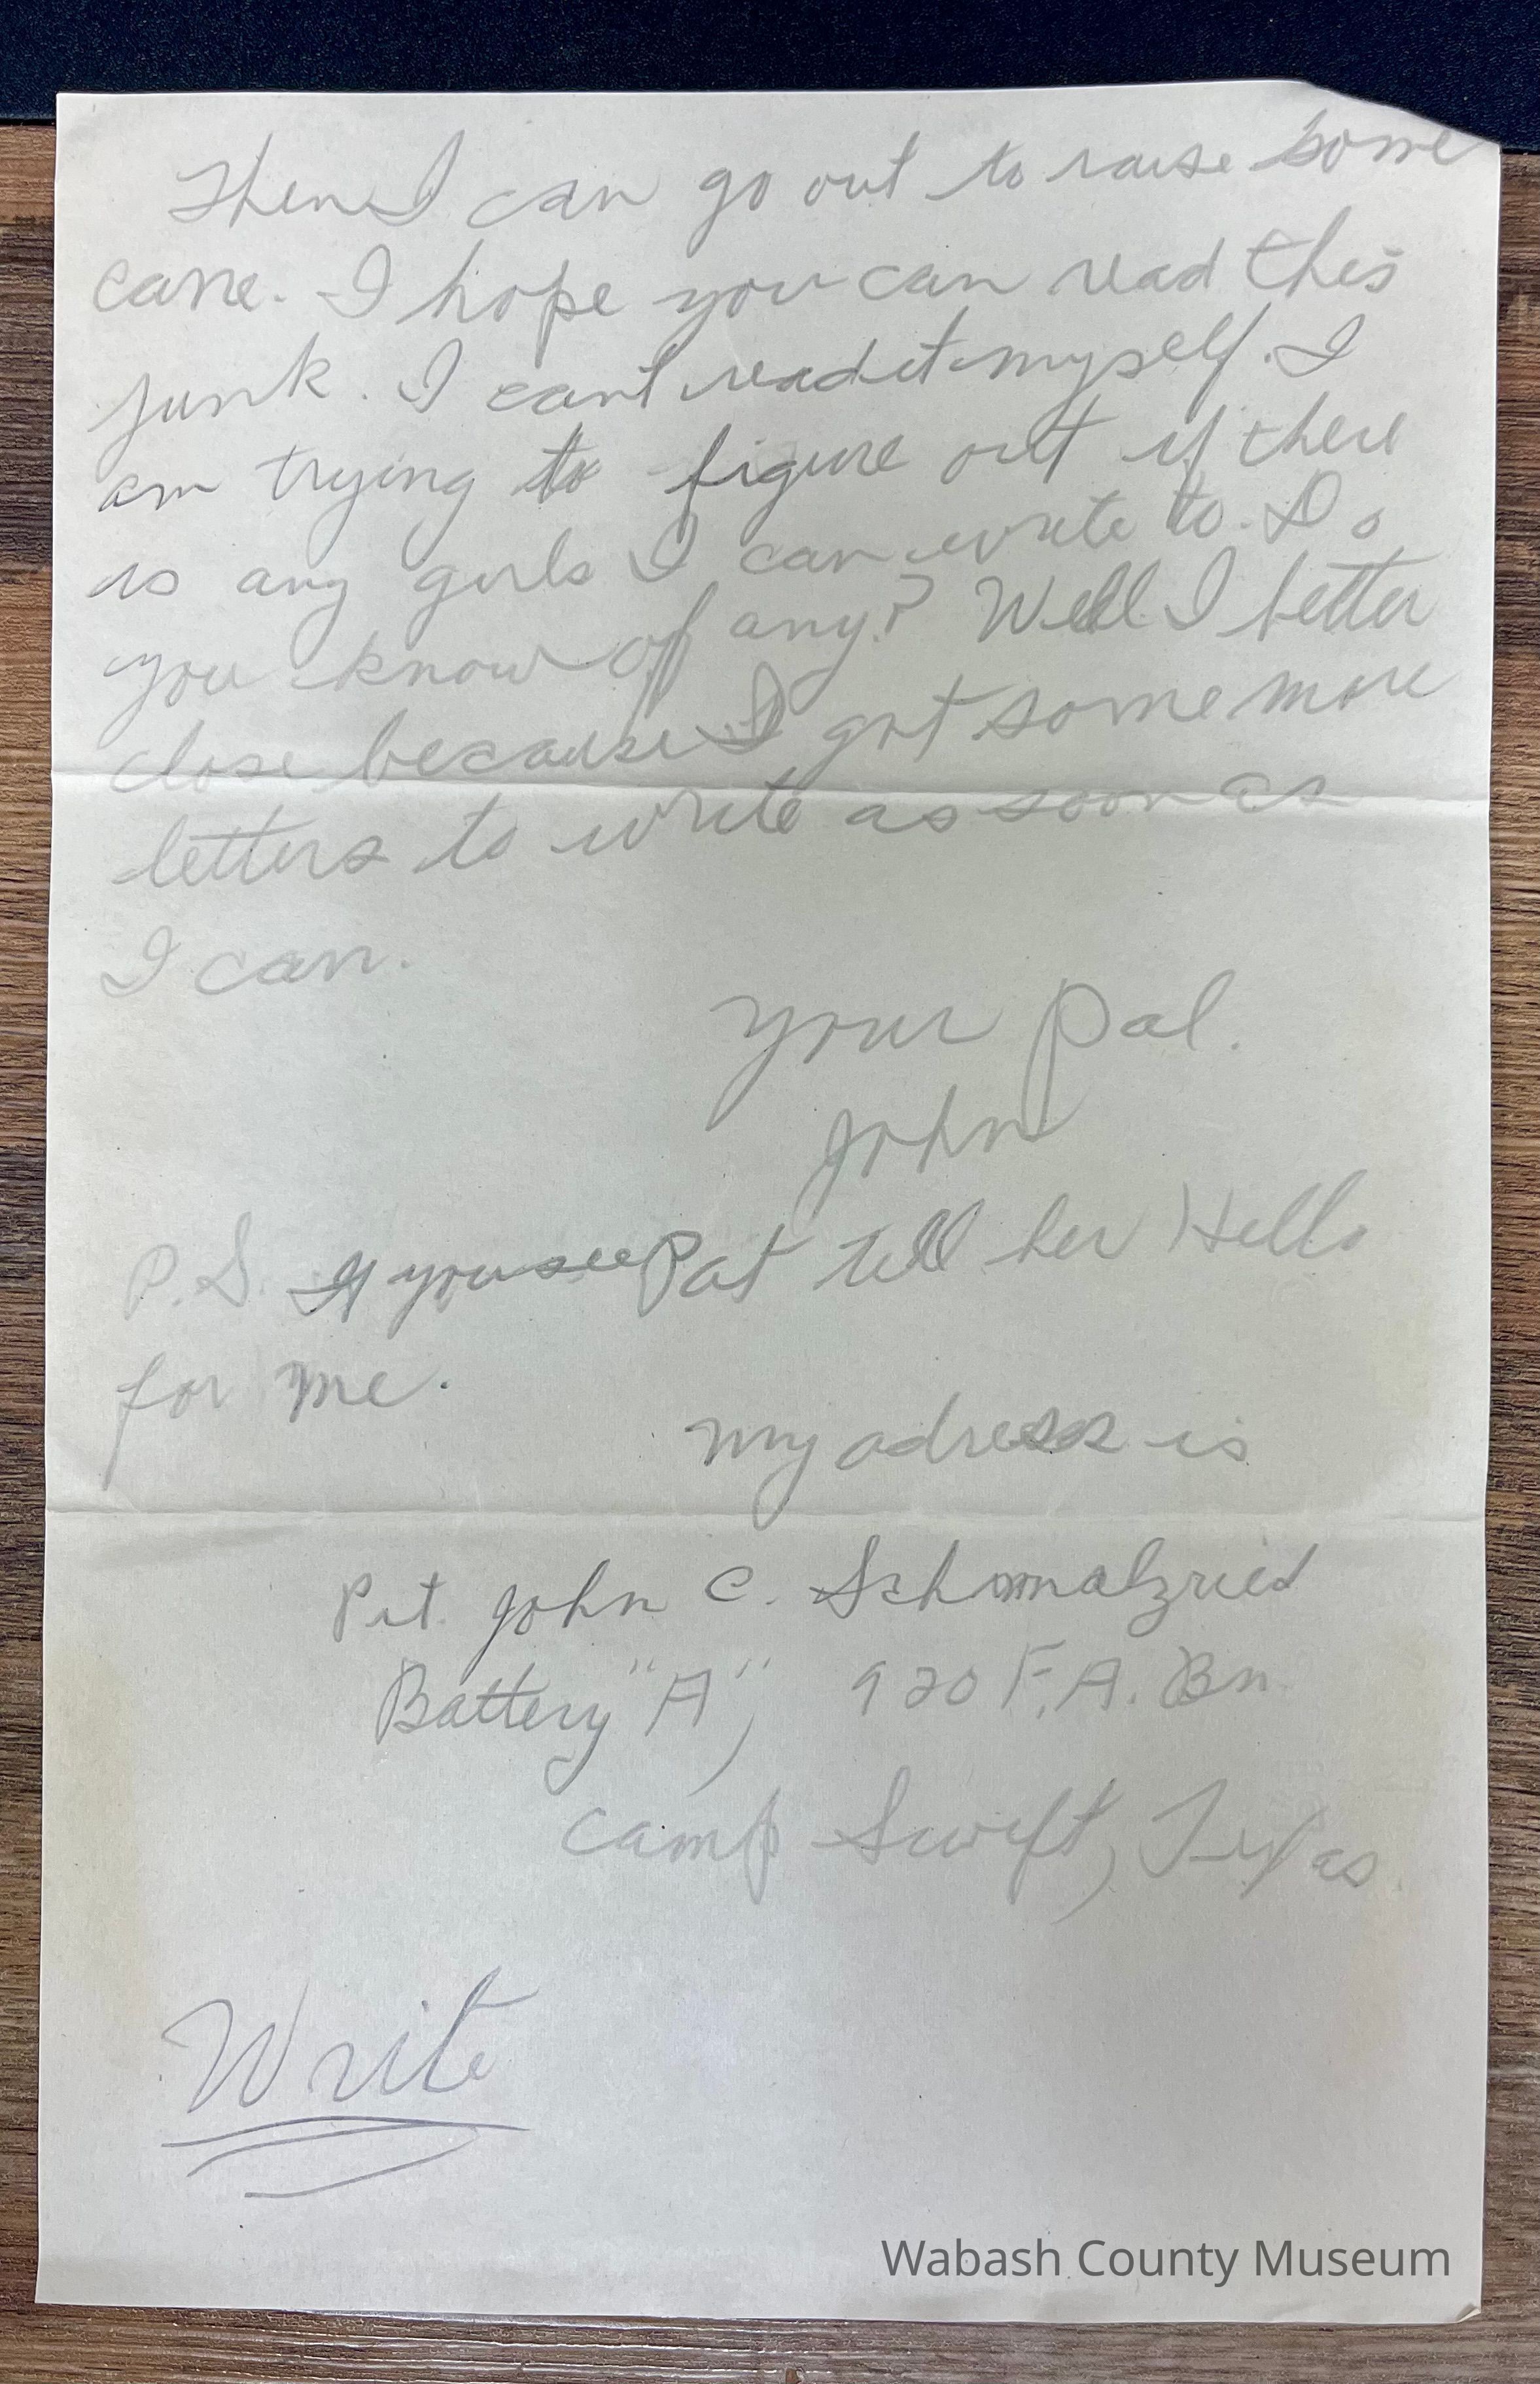 Then I can go out to raise some
cane. I hope you can read this
junk. I cant read it myself. I
am trying to figure out if there
is any girls I can write to. Do
you know of any? Well I better
close because I got some more
letters to write as soon as
I can.
Your Pal.
John
P.S. If you see Pat tell her Hello
for me.
My adress is
Pvt. John C. Schmalzried
Battery "A", 920 F.A. Bn
Camp Swift, Texas.
Write
Wabash County Museum